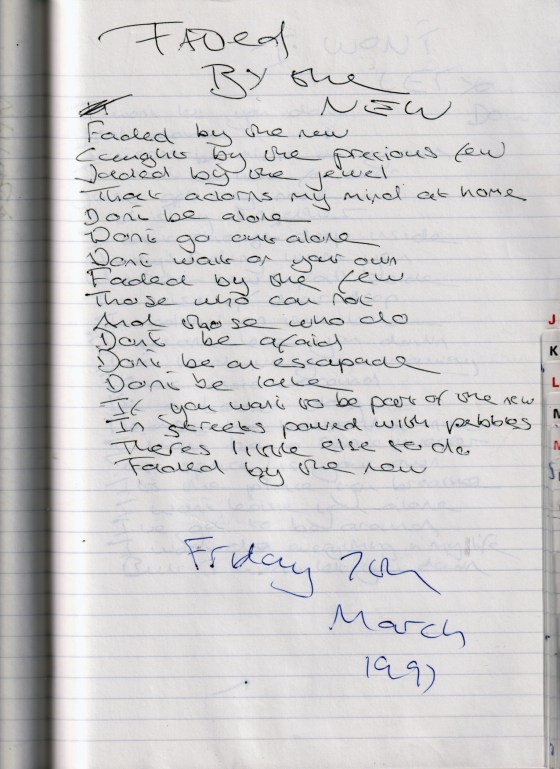 FADed
By the
NEW
Faded by the new
Caught by the precious few
Jaded by the jewel
That adorns my mind at home
Dont be alone
Dont go out alone
Dont walk on your own
Faded by the few
Those who can not
And those who do
Dont be afraid
Dont be an escapade
Dont be late
If you want to be part of the new
In streets paved with pebbles
Theres little else to do
Faded by the new
Friday 7th
March
1997
J
K
L
M